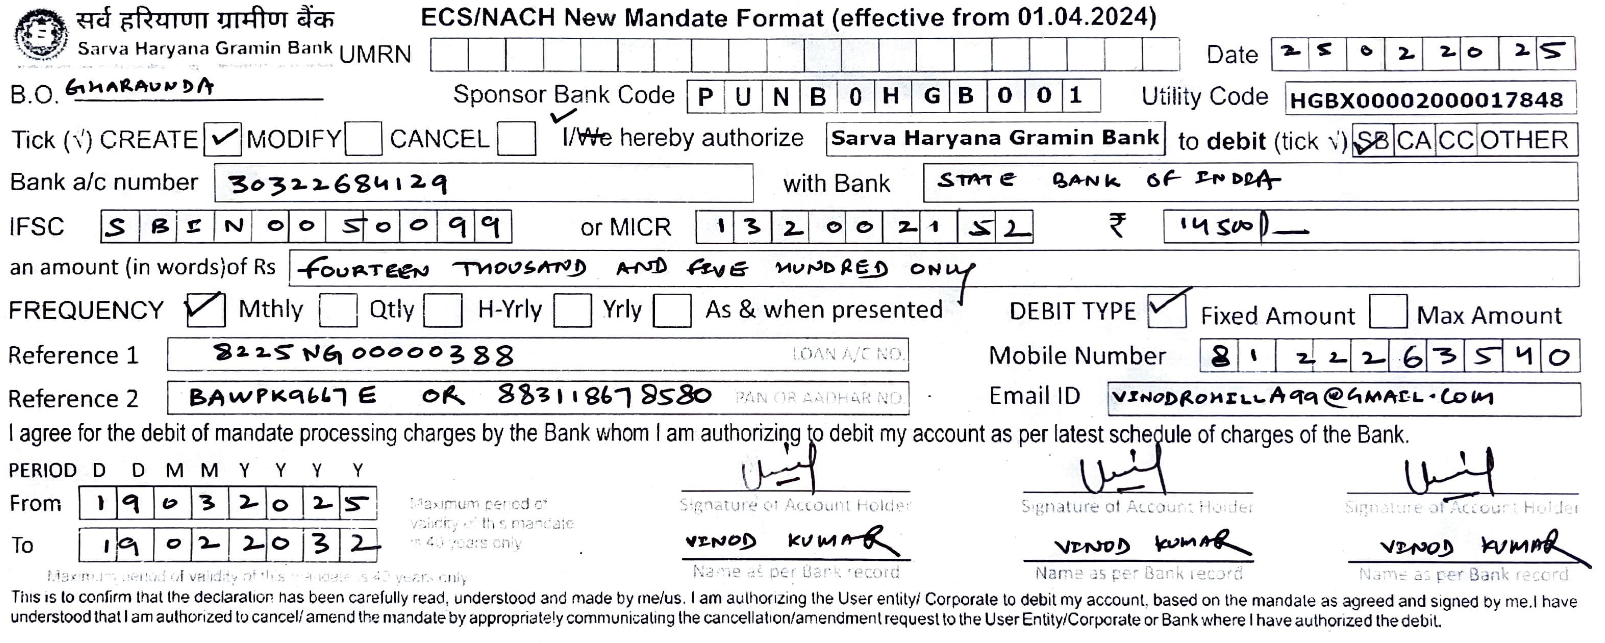 सर्व हरियाणा ग्रामीण बैंक ECS/NACH New Mandate Format (effective from 01.04.2024)
Sarva Haryana Gramin Bank UMRN Date 25022025
B.O. GHARAUNDA Sponsor Bank Code PUNB0HGB001 Utility Code HGBX00002000017848
Tick (√) CREATE ✓ MODIFY CANCEL I/We hereby authorize Sarva Haryana Gramin Bank to debit (tick √) SB CA CC OTHER
Bank a/c number 30322684129 with Bank STATE BANK OF INDIA
IFSC SBIN0050099 or MICR 132002152 ₹ 14500/-
an amount (in words)of Rs FOURTEEN THOUSAND AND FIVE HUNDRED ONLY
FREQUENCY ✓ Mthly Qtly H-Yrly Yrly As & when presented DEBIT TYPE ✓ Fixed Amount Max Amount
Reference 1 8225NG00000388 LOAN A/C NO. Mobile Number 8122263540
Reference 2 BAWPK9667E OR 883118678580 PAN OR AADHAR NO. Email ID VINODROHILLA99@GMAIL.COM
I agree for the debit of mandate processing charges by the Bank whom I am authorizing to debit my account as per latest schedule of charges of the Bank.
PERIOD D D M M Y Y Y Y
From 19032025 Maximum period of validity of this mandate is 40 years only Signature of Account Holder Signature of Account Holder Signature of Account Holder
To 19022032 VINOD KUMAR VINOD KUMAR VINOD KUMAR
Maximum period of validity of this mandate is 40 years only Name as per Bank record Name as per Bank record Name as per Bank record
This is to confirm that the declaration has been carefully read, understood and made by me/us. I am authorizing the User entity/ Corporate to debit my account, based on the mandate as agreed and signed by me.I have
understood that I am authorized to cancel/ amend the mandate by appropriately communicating the cancellation/amendment request to the User Entity/Corporate or Bank where I have authorized the debit.